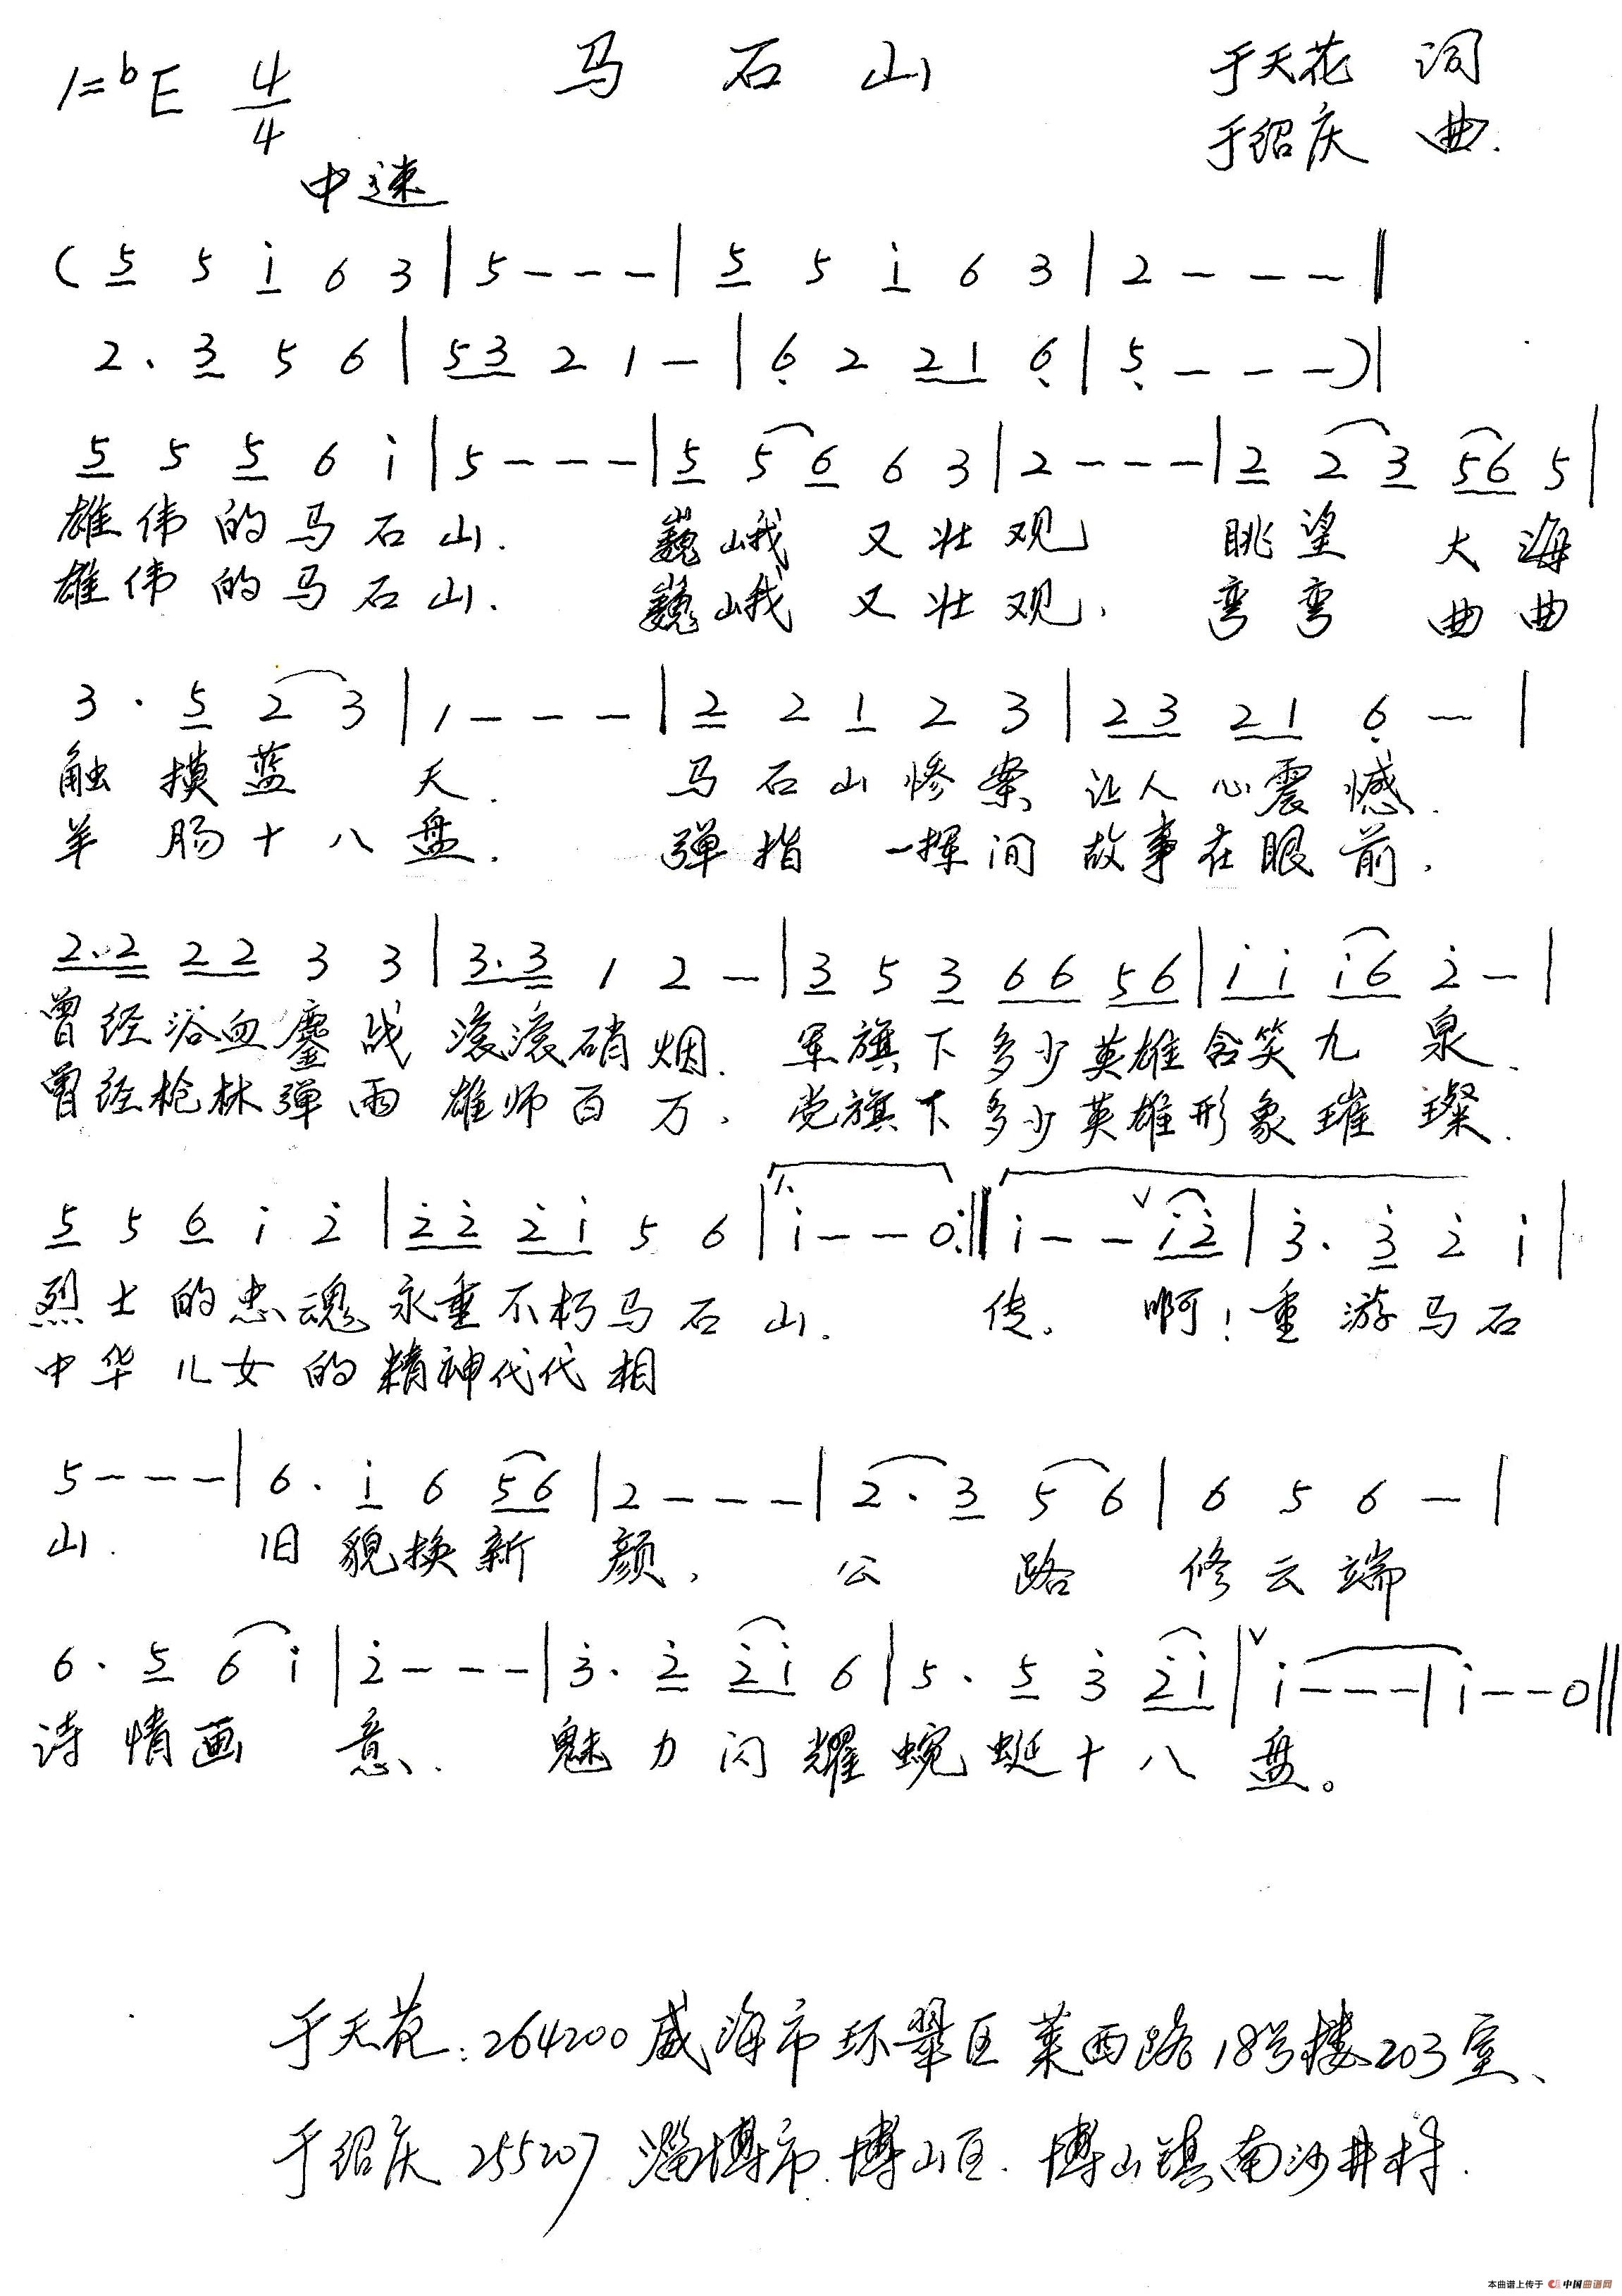 1=bE 4/4 马石山 于天花 词
于绍庆 曲.
中速
( 5 5 i 6 3 | 5 - - - | 5 5 i 6 3 | 2 - - - ‖
2 . 3 5 6 | 53 2 1 - | 6̣ 2 21 6̣ | 5̣ - - - ) |
5 5 5 6 i | 5 - - - | 5 5 6 6 3 | 2 - - - | 2 2 3 56 5 |
雄伟的马石山. 巍峨又壮观 眺望大海
雄伟的马石山. 巍峨又壮观. 弯弯曲曲
3 . 5 2 3 | 1 - - - | 2 2 1 2 3 | 23 21 6̣ - |
触摸蓝天. 马石山惨案 让人心震憾.
羊肠十八盘. 弹指一挥间 故事在眼前.
2.2 22 3 3 | 3.3 1 2 - | 3 5 3 66 56 | i i i6 2̇ - |
曾经浴血鏖战 滚滚硝烟. 军旗下多少英雄含笑九泉.
曾经枪林弹雨 雄师百万. 党旗下多少英雄形象璀璨.
5 5 6 i 2̇ | 2̇2̇ 2̇i 5 6 | 1. i - - 0 :‖ i - - ∨ i2̇ | 3̇ . 3̇ 2̇ i |
烈士的忠魂永垂不朽马石山. 传. 啊!重游马石
中华儿女的精神代代相
5 - - - | 6 . i 6 56 | 2 - - - | 2 . 3 5 6 | 6 5 6 - |
山. 旧貌换新颜. 公路修云端
6 . 5 6 i | 2̇ - - - | 3̇ . 2̇ 2̇i 6 | 5 . 5 3̇ 2̇i | ∨ i - - - | i - - 0 ‖
诗情画意、. 魅力闪耀蜿蜒十八盘。
于天花:264200威海市环翠区莱西路18号楼203室、
于绍庆 255207 淄博市.博山区.博山镇南沙井村.
本曲谱上传于 中国曲谱网